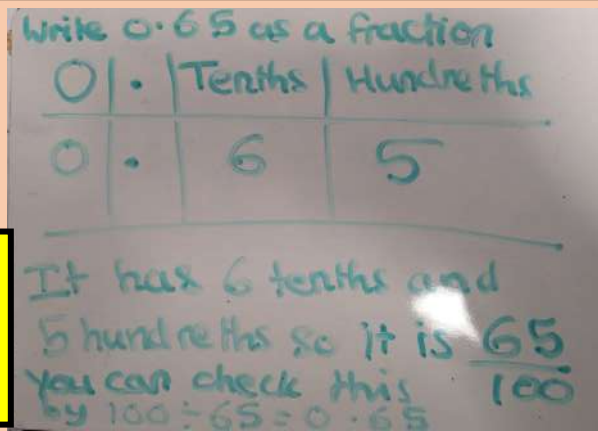 Write 0.65 as a fraction
0 | . | Tenths | Hundreths
0 | . | 6 | 5
It has 6 tenths and
5 hundreths so it is 65/100
You can check this
by 100÷65=0.65